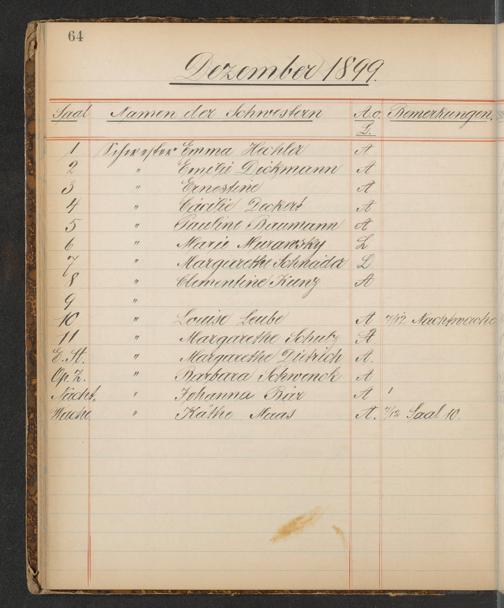 64
Dezember 1899.
Saal Namen der Schwestern A.o. L. Bemerkungen.
1 Schwester Emma Hechler A
2 " Emilie Dickmann A
3 " Ernestine A
4 " Cäcilie Deckert A
5 " Pauline Baumann A
6 " Marie L
7 " Margarethe Schnader L
8 " Clementine Kunz A
9 "
10 " Louise Leube A 7/12 Nachtwache
11 " Margarethe Schulz A
E. St. " Margarethe Dietrich A.
Op. Z. " Barbara Schwenck A
Nacht. " Johanna Bär A
Wache " Käthe Maas A. 7/12 Saal 10.